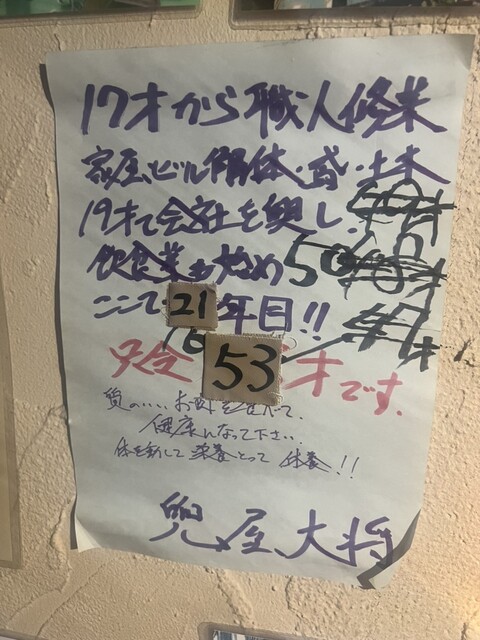 17才から職人修業
家屋、ビル解体・鳶・土木
19才で会社を興し、
飲食業も始め 50
ここで 21 年目!!
只今 53 才です。
質のいい、お肉を食べて、
健康になって下さい。
体を動して 栄養とって 休養!!
兜屋 大将